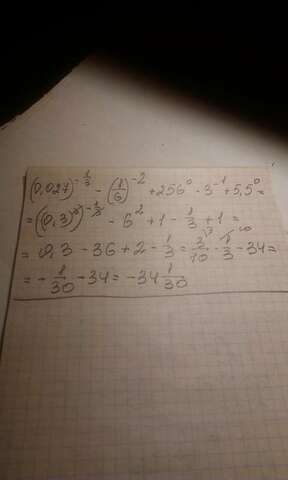 (0,027)^(-1/3) - (1/6)^(-2) + 256^0 · 3^(-1) + 5,5^0 =
= ((0,3)^3)^(-1/3) - 6^2 + 1 - 1/3 + 1 =
= 0,3 - 36 + 2 - 1/3 = 3/10 - 1/3 - 34 =
= - 1/30 - 34 = - 34 1/30